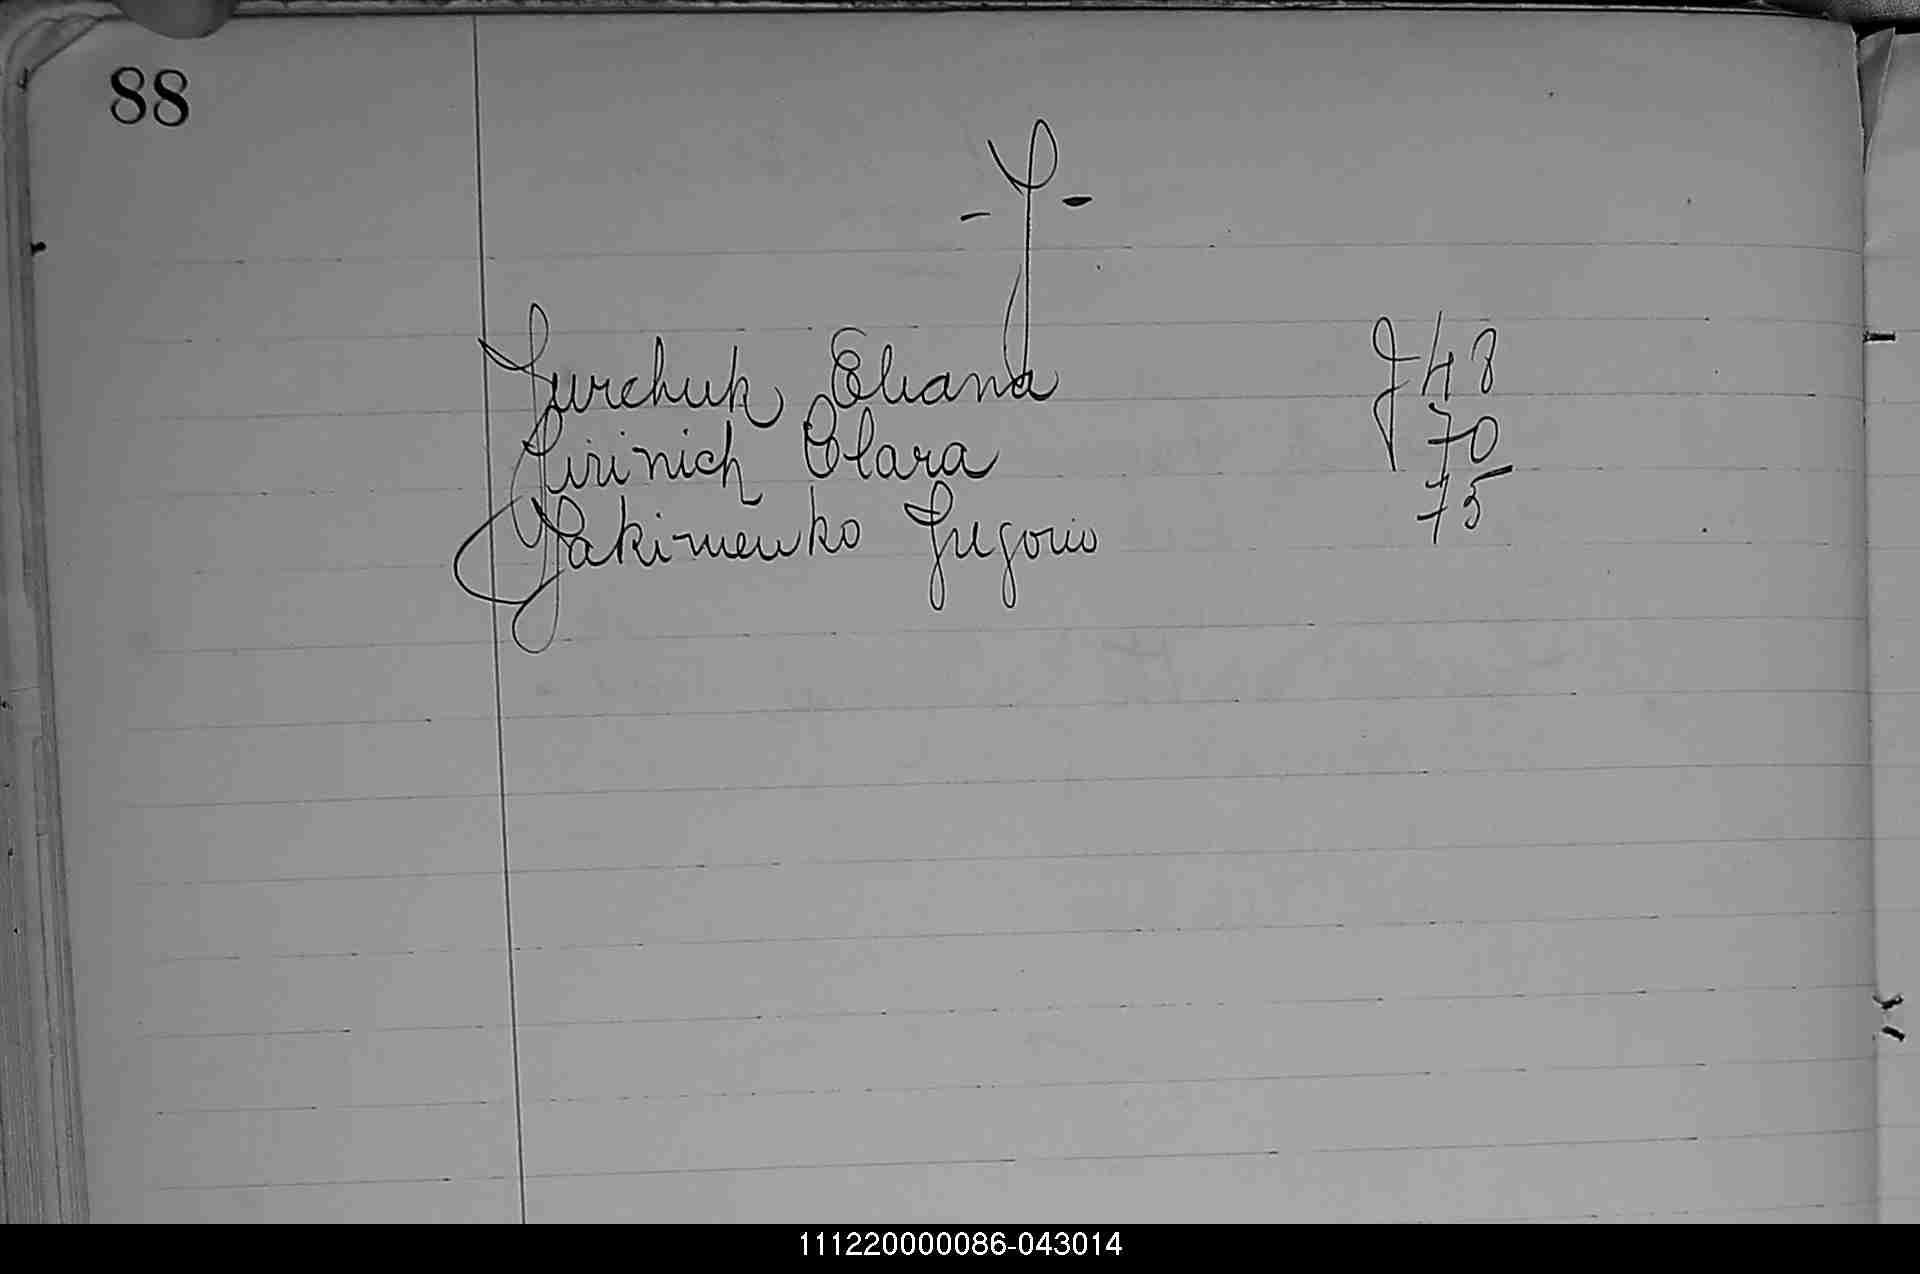 88
- Y -
Yurchuk Eliana J 48
Yirinich Clara 70
Yakimenko Gregorio 75
111220000086-043014